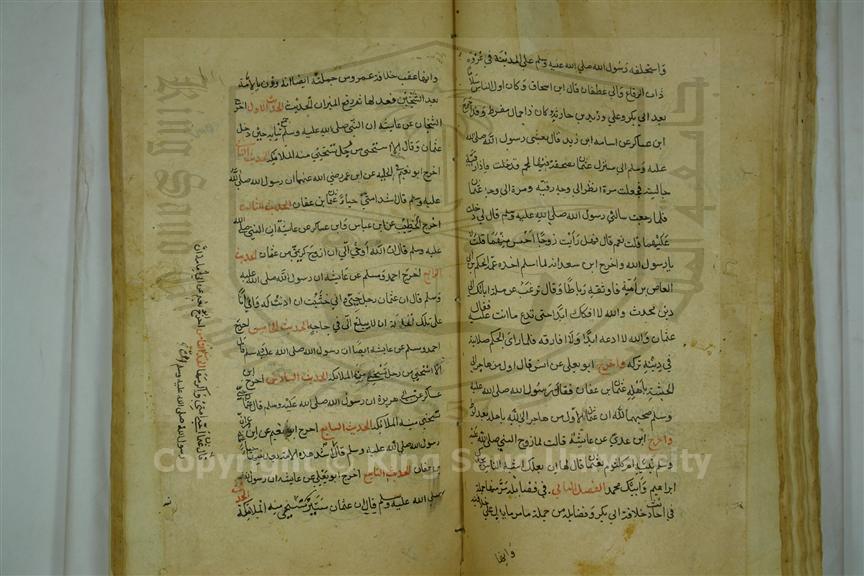 واستخلفه رسول الله صلي الله عليه وسلم على المدينة في غزوة
ذات الرقاع والي غطفان قال ابن اسحاق وكان اول الناس اسلاما
بعد ابي بكر وعلي وزيد بن حارثة وكان ذا جمال مفرط واخرج
ابن عساكر عن اسامة ابن زيد قال بعثني رسول الله صلى الله
عليه وسلم الى منزل عثمان بصحفة فيها لحم فدخلت فاذا رقية
جالسة فجعلت مرة انظر الى وجه رقية ومرة الى وجه عثمان
فلما رجعت سالني رسول الله صلي الله عليه وسلم قال لي دخلت
عليهما قلت نعم قال فهل رايت زوجا احسن منهما قلت لا
يا رسول الله واخرج ابن سعد انه لما اسلم اخذه عمه الحكم بن
العاص بن امية فاوثقه رباطا وقال ترغب عن ملة ابائك الي
دين محدث والله لا افكك ابدا حتى تدع ما انت عليه فقال
عثمان والله لا ادعه ابدا ولا افارقه فلما راى الحكم صلابته
في دينه تركه واخرج ابو يعلي عن انس قال اول من هاجر الي
الحبشة باهله عثمان بن عفان فقال رسول الله صلى الله عليه
وسلم صحبهما الله ان عثمان لاول من هاجر الى الله باهله بعد لوط
واخرج ابن عدي عن عايشة قالت لما زوج النبي صلى الله عليه
وسلم بنته ام كلثوم بعثمان قال لها ان بعلك اشبه الناس بجدك
ابراهيم وابيك محمد الفصل الثاني في فضايله
في احاديث خلافة ابي بكر وفضايله من جملة
وايضا
وايضا عقب خلافة عمر وس جملته ايضا انه وزن بالامة
بعد الشيخين فعدلها ثم رفع الميزان الحديث الاول اخرج
الشيخان عن عايشة ان النبي صلى الله عليه وسلم جمع ثيابه حين دخل
عثمان وقال الا استحيي من رجل تستحيي منه الملائكة الحديث الثاني
اخرج ابو نعيم في الحلية عن ابن عمر رضي الله عنهما ان رسول الله صلى الله
عليه وسلم قال اشد امتي حياء عثمان بن عفان الحديث الثالث
اخرج الخطيب عن ابن عباس وابن عساكر عن عايشة ان النبي صلى الله
عليه وسلم قال ان الله اوحي الي ان ازوج كريمتي من عثمان الحديث
الرابع اخرج احمد ومسلم عن عايشة ان رسول الله صلي الله عليه
وسلم قال ان عثمان رجل حيي واني خشيت ان اذنت له وانا
على تلك الحالة ان لا يبلغ الي في حاجته الحديث الخامس اخرج
احمد ومسلم عن عايشة ايضا ان رسول الله صلي الله عليه وسلم قال
الا استحيي من رجل تستحيي منه الملائكة الحديث السادس اخرج ابن
عساكر عن ابي هريرة ان رسول الله صلى الله عليه وسلم قال عثمان
تستحيي منه الملائكة الحديث السابع اخرج ابو نعيم عن ابن
رسول الله صلى الله عليه وسلم قال اشد هذه الامة بعد نبيها
بن عفان الحديث التاسع اخرج ابو يعلي عن عايشة ان رسول
صلي الله عليه وسلم قال ان عثمان ستير تستحيي منه الملائكة
الحديث الثامن اخرج ابو نعيم
قال عثمان احيي امتي واكرمها
رسول الله صلى الله عليه وسلم
King Saud University
Copyright © King Saud University